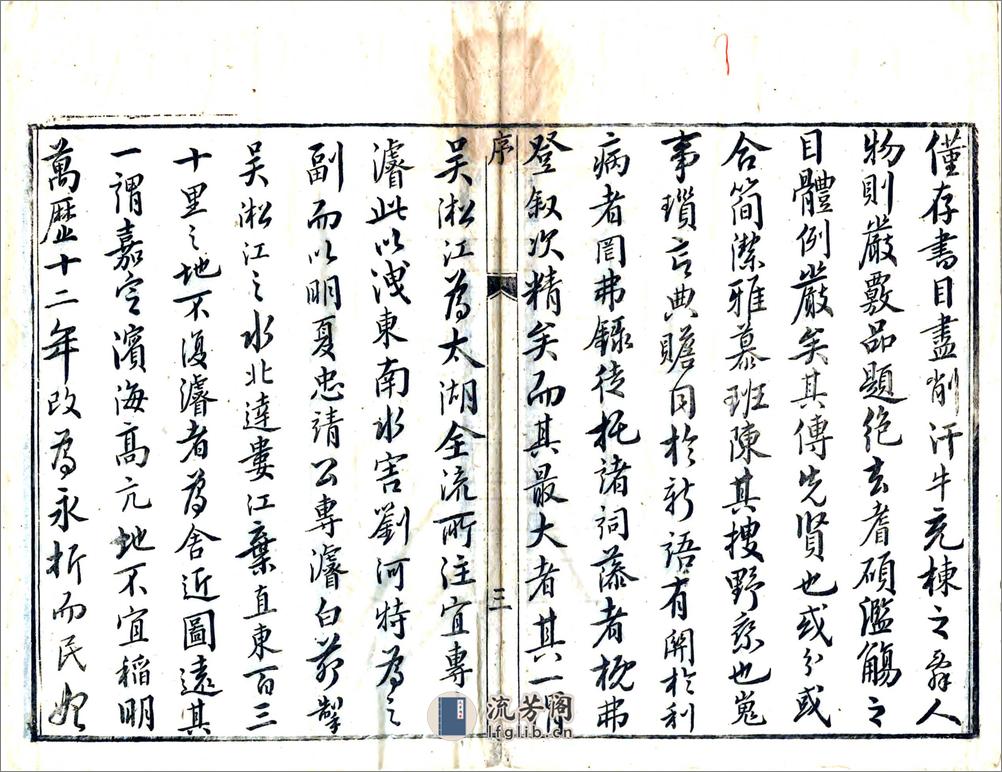 僅存書目盡削汗牛充棟之舜人
物則嚴覈品題絶去耆碩濫觴之
目體例嚴矣其傳先賢也或分或
合简潔雅慕班陳其搜野乘也嵬
事瑣言典贍因於新語有關於利
病者罔弗錄徒托諸詞藻者槩弗
登叙次精矣而其最大者其一謂
序
三
吴淞江為太湖全流所注宜專
濬此以洩東南水害劉河特為之
副而以明夏忠靖公專濬白茆掣
吴淞江之水北達婁江棄直東百三
十里之地不復濬者為舍近圖遠其
一謂嘉定濱海高亢地不宜稲明
萬歷十二年改為永折而民始
流芳阁
lfglib.com